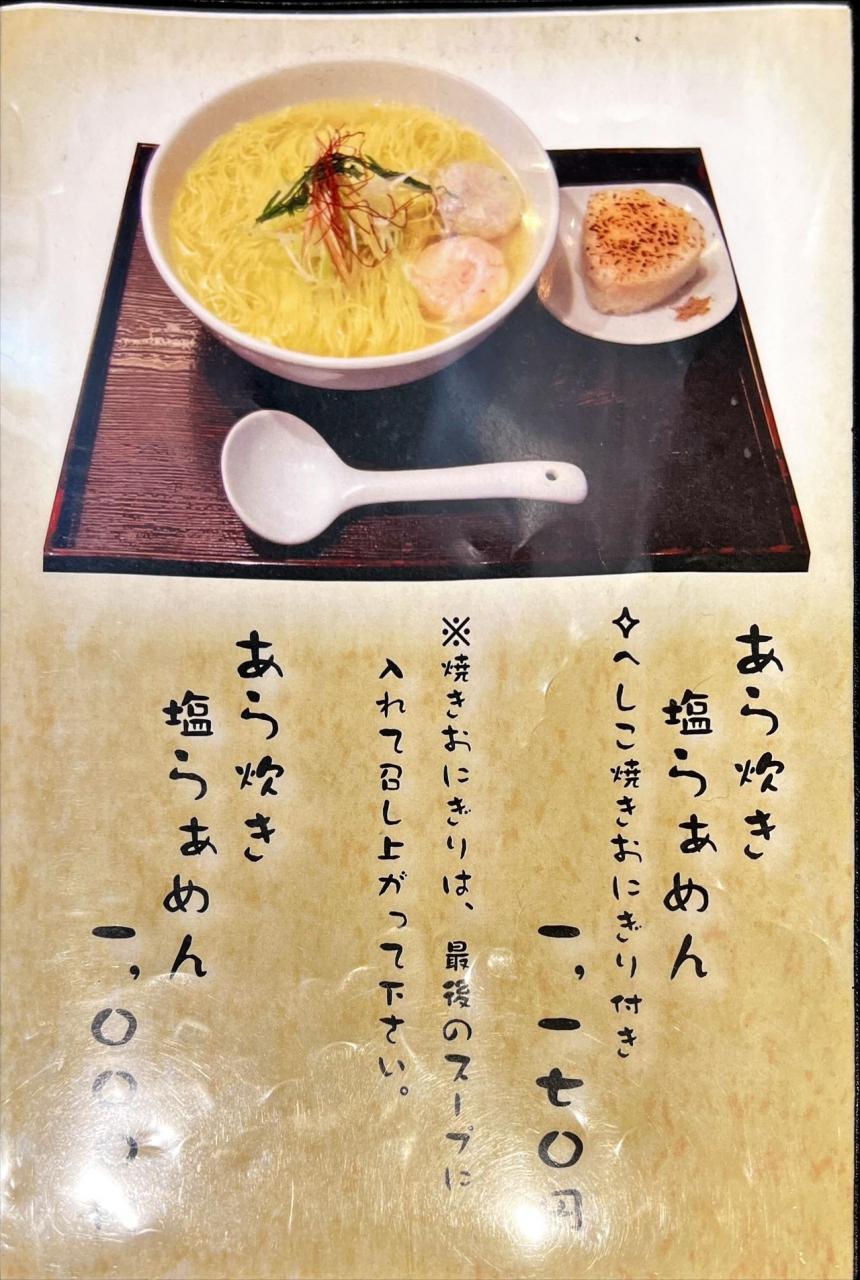 あら炊き
塩らぁめん
✧へしこ焼きおにぎり付き
一,一七〇円
※焼きおにぎりは、最後のスープに
入れて召し上がって下さい。
あら炊き
塩らぁめん
一,〇〇〇